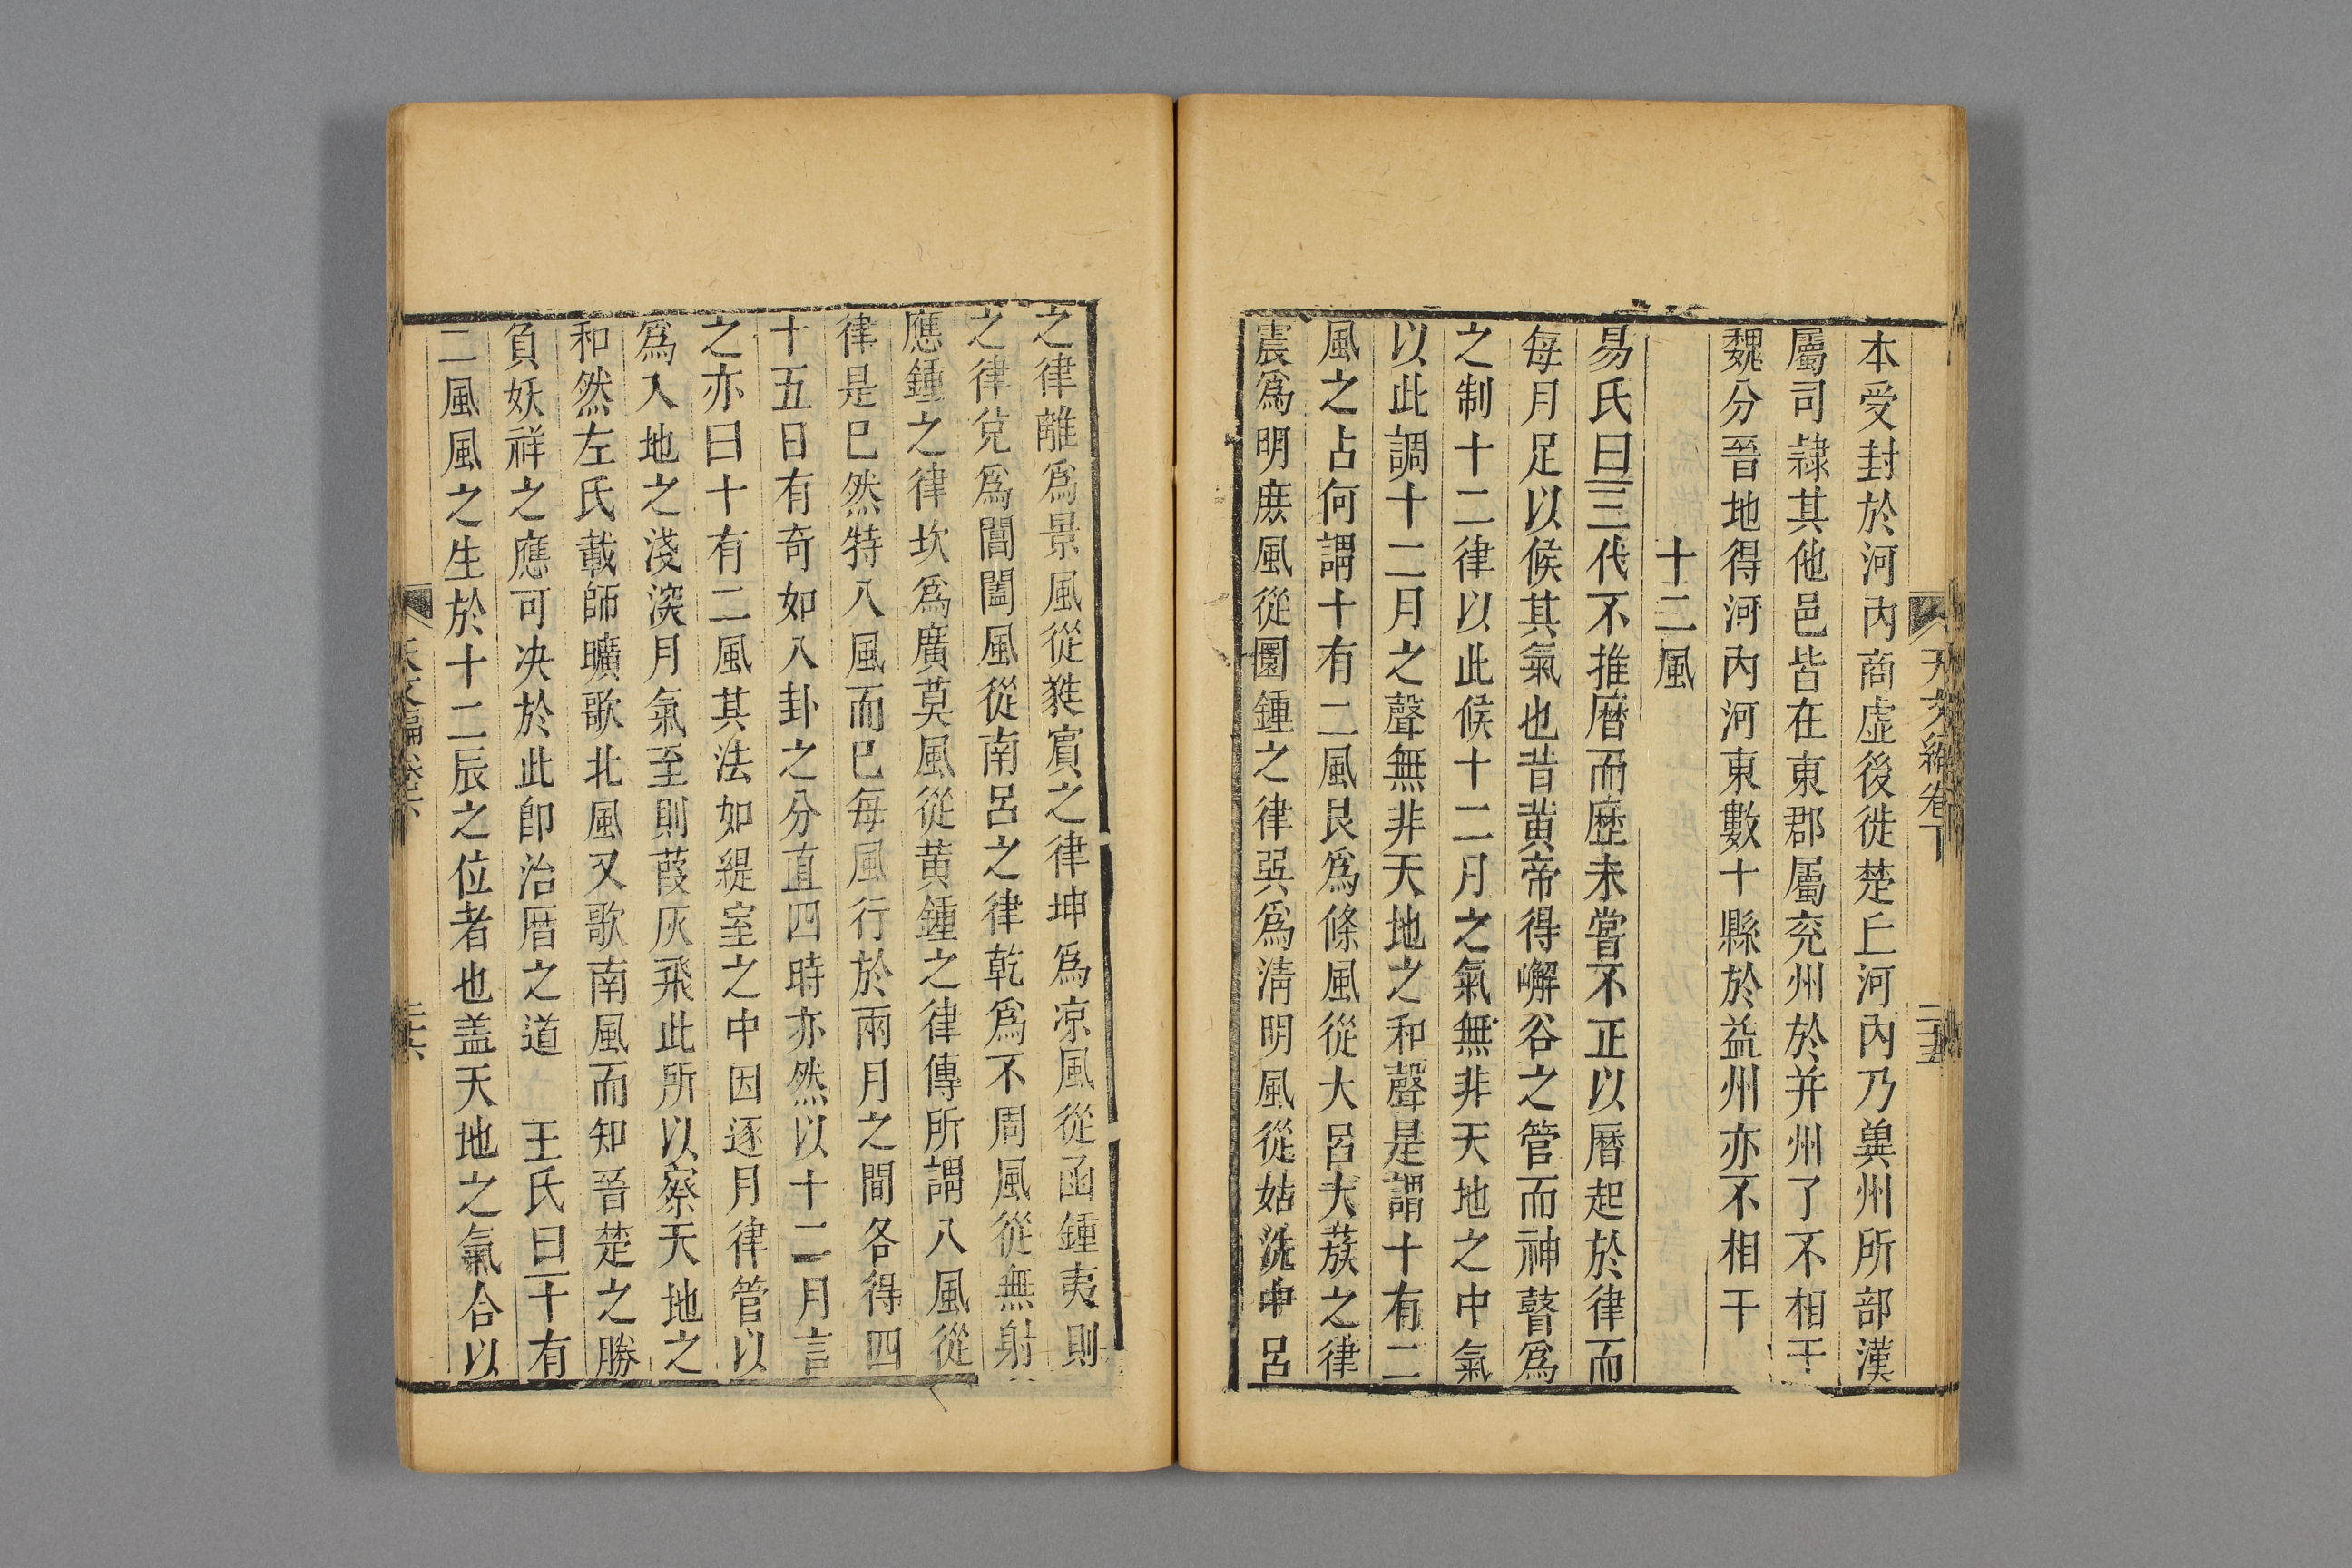 本受封於河內商虛後徙楚丘河內乃兾州所部漢
屬司隷其他邑皆在東郡屬兖州於并州了不相干
魏分晉地得河內河東數十縣於益州亦不相干
十二風
易氏曰三代不推曆而歷未嘗不正以曆起於律而
每月足以候其氣也昔黃帝得嶰谷之管而神瞽爲
之制十二律以此候十二月之氣無非天地之中氣
以此調十二月之聲無非天地之和聲是謂十有二
風之占何謂十有二風艮爲條風從大呂大蔟之律
震爲明庶風從圜鍾之律巽爲清明風從姑洗中呂
之律離爲景風從蕤賓之律坤爲凉風從函鍾夷則
之律兌爲閶闔風從南呂之律乾爲不周風從無射
應鍾之律坎爲廣莫風從黃鍾之律傳所謂八風從
律是已然特八風而已每風行於兩月之間各得四
十五日有奇如八卦之分直四時亦然以十二月言
之亦曰十有二風其法如緹室之中因逐月律管以
爲入地之淺深月氣至則葭灰飛此所以察天地之
和然左氏載師曠歌北風又歌南風而知晉楚之勝
負妖祥之應可决於此卽治曆之道 王氏曰十有
二風風之生於十二辰之位者也盖天地之氣合以